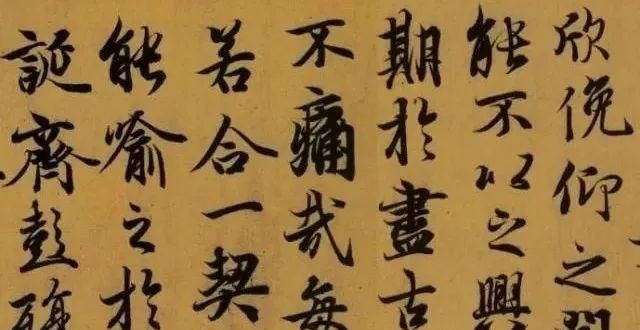 欣俛仰之間
能不以之興
期於盡古
不痛哉每
若合一契
能喻之於
誕齊彭殤